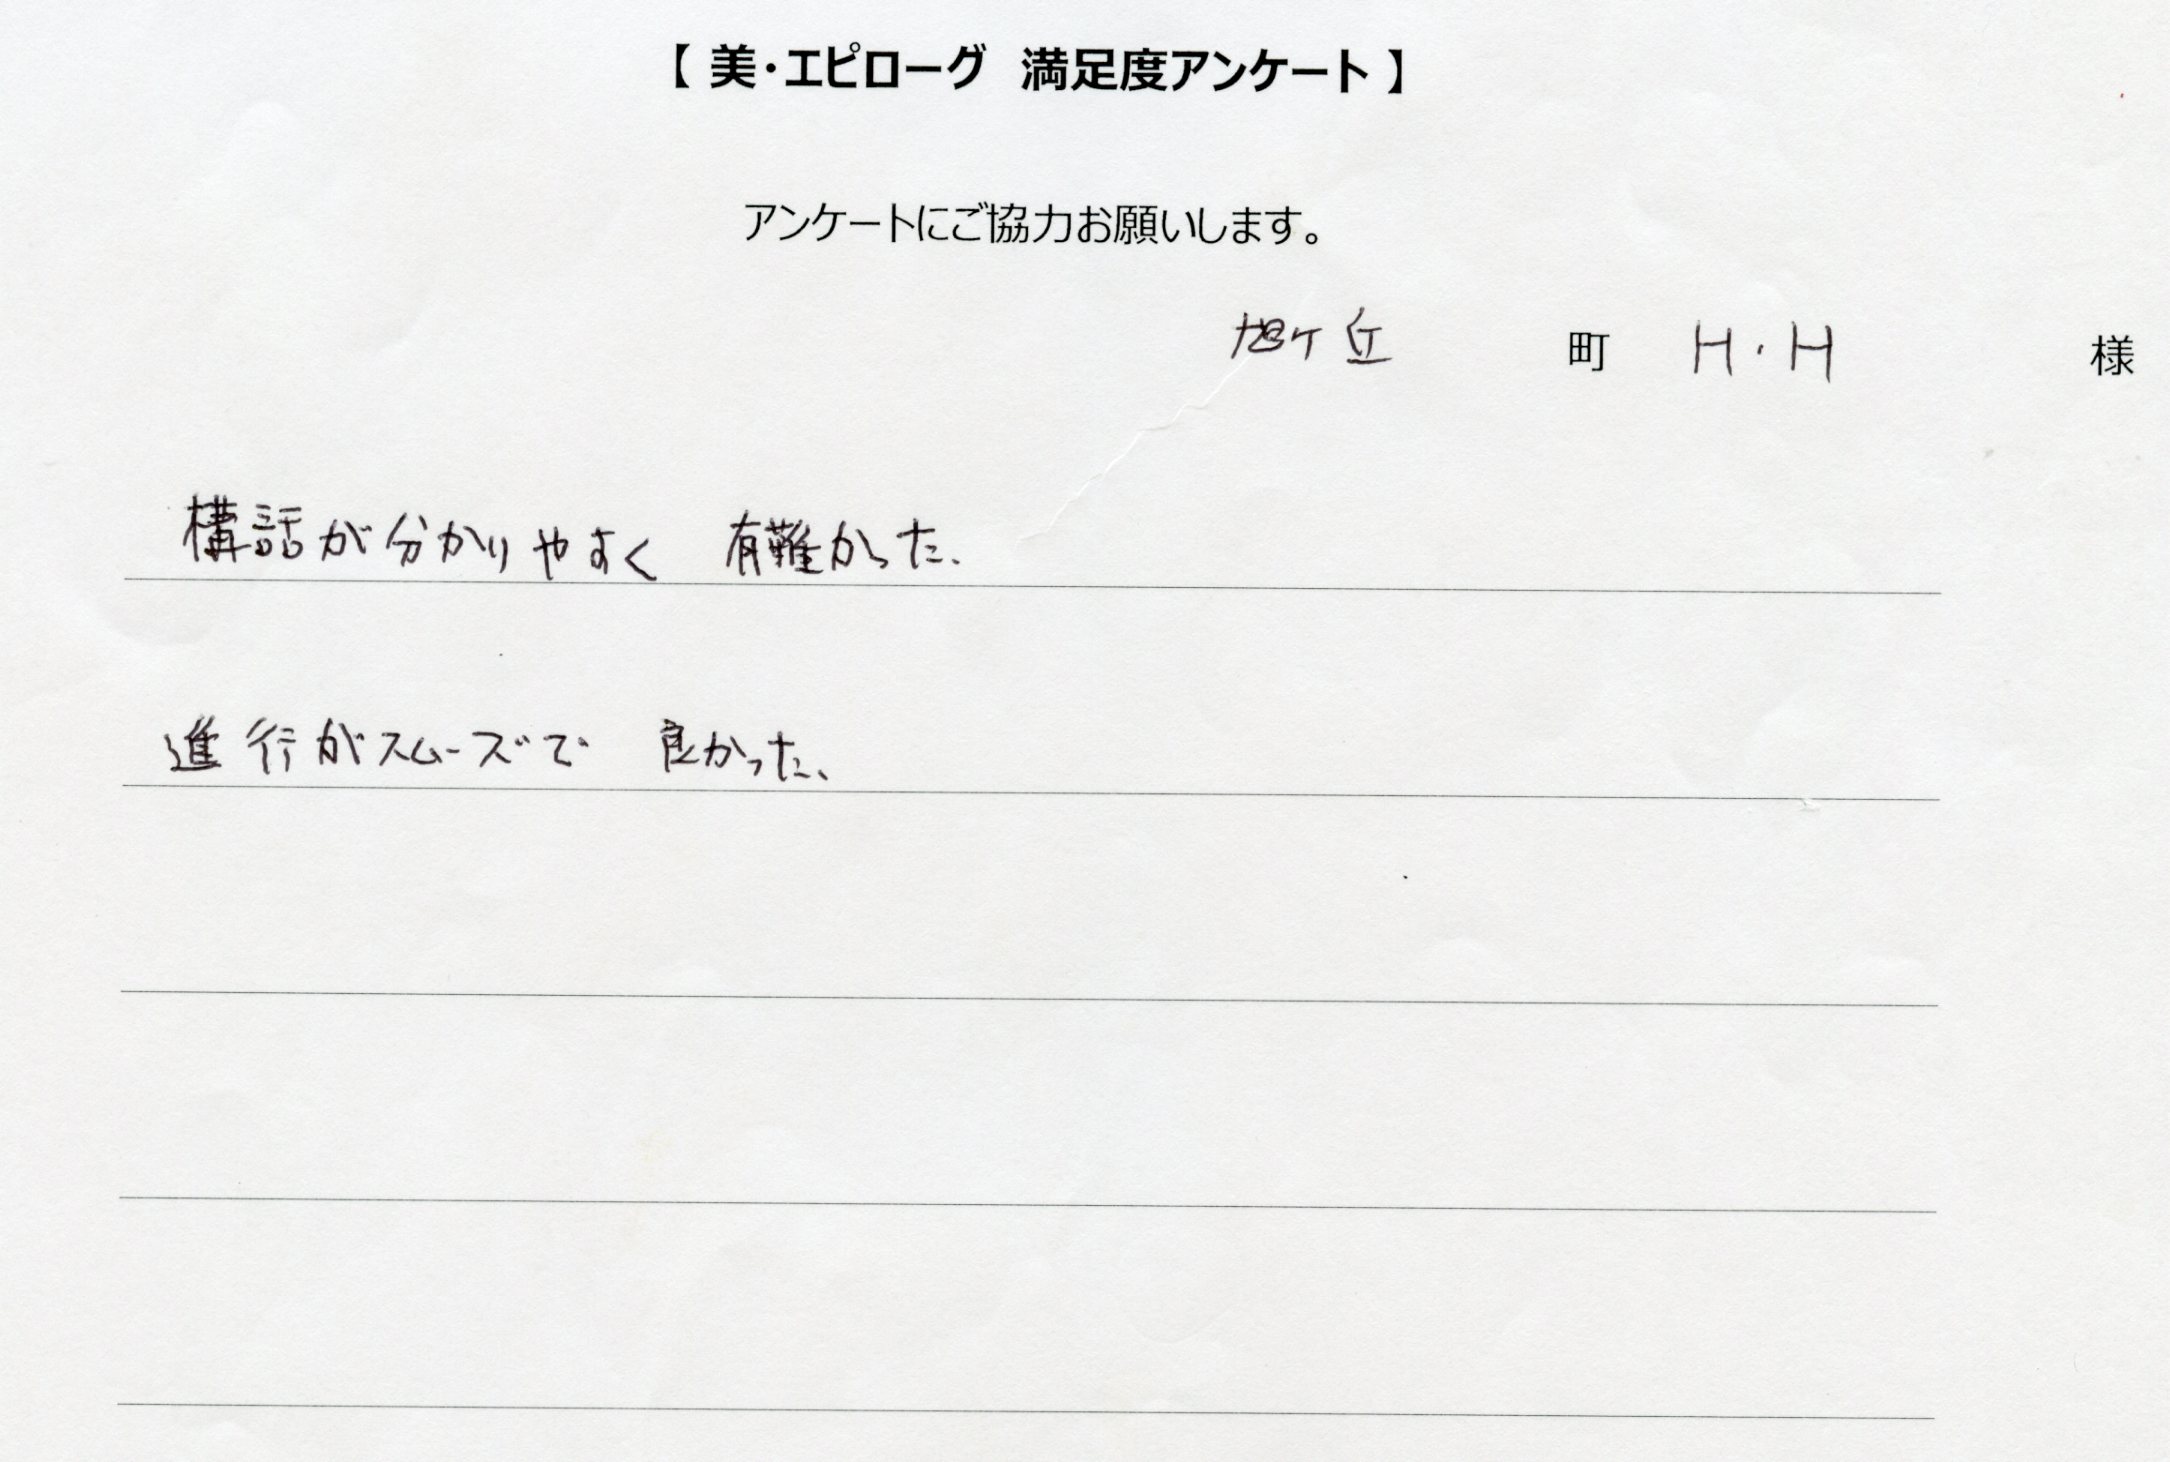 【 美・エピローグ 満足度アンケート 】
アンケートにご協力お願いします。
旭ケ丘 町 H.H 様
構話が分かりやすく 有難かった、
進行がスムーズで 良かった、